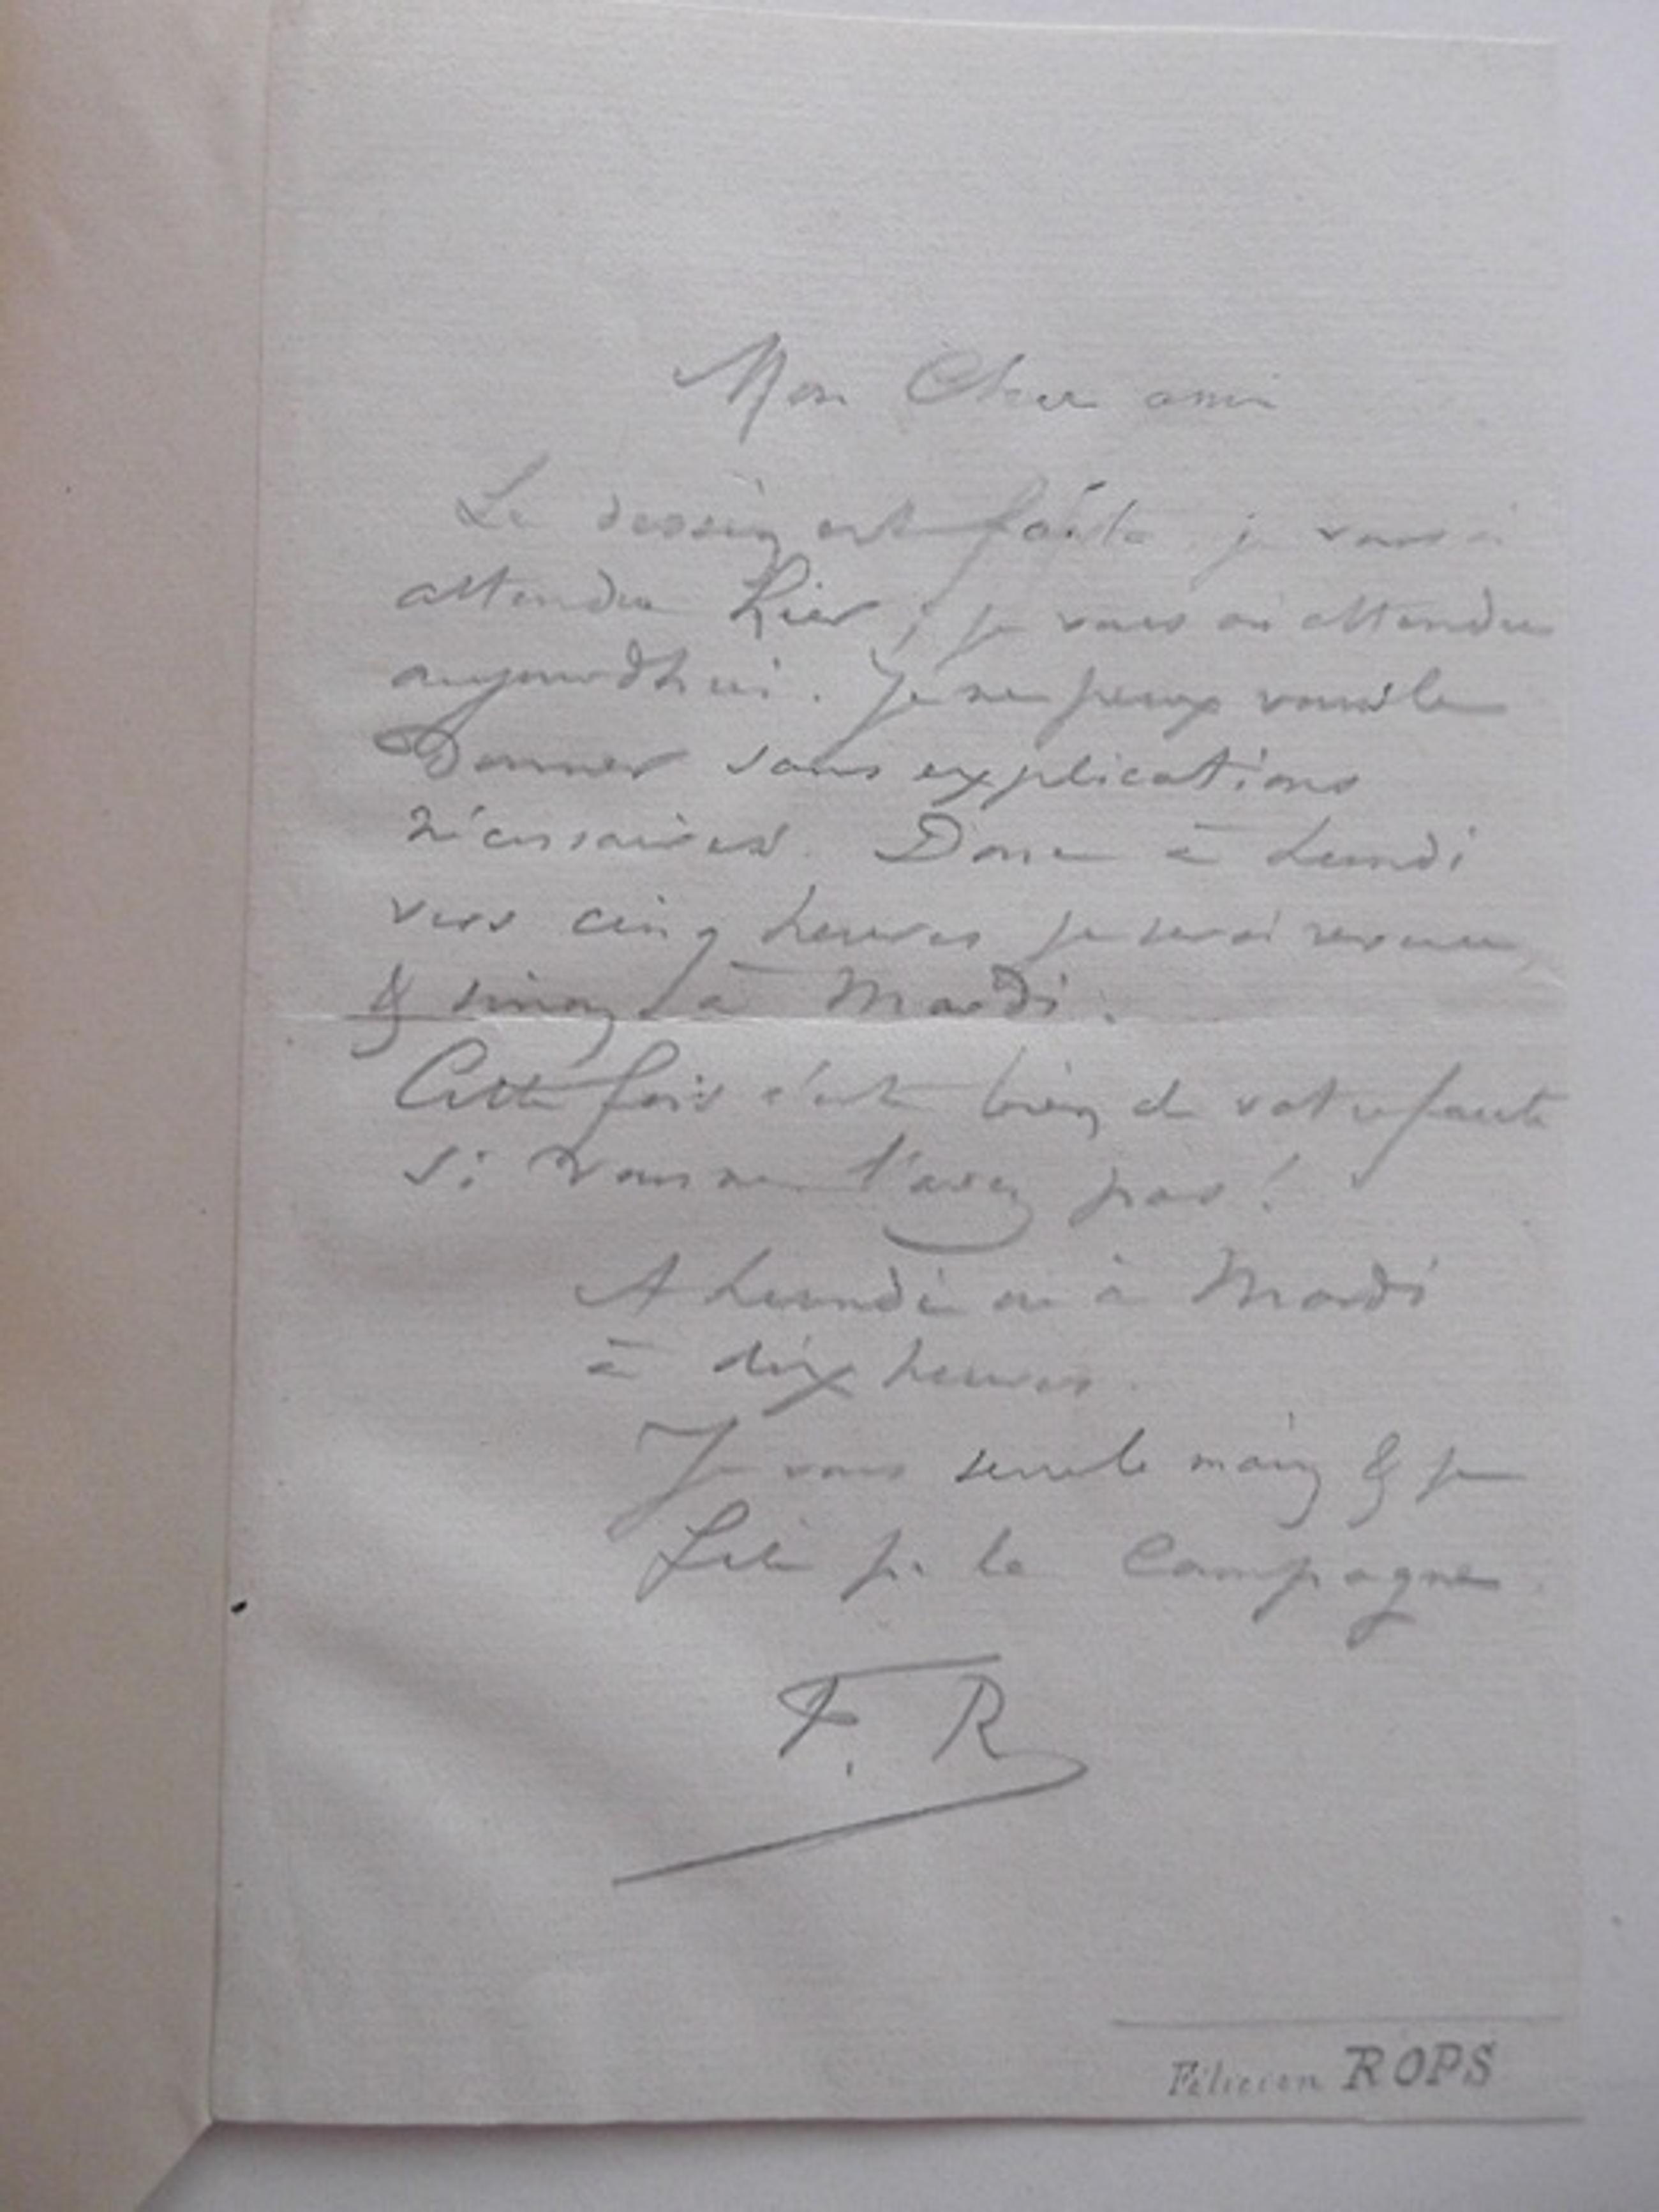 Mon Cher ami
Le dessin est faite, je vous ai
attendu Hier ; je vous ai attendu
aujourdhui. Je ne peux vous le
Donner sans explications
nécessaires. Donc à Lundi
vers cinq heures je serai revenu,
& sinon, à Mardi.
Cette fois c'est bien de votre faute
si vous ne l'avez pas !
A Lundi ou à Mardi
à dix heures.
Je vous serre la main & je
file p. la Campagne.
F. R
Félicien ROPS